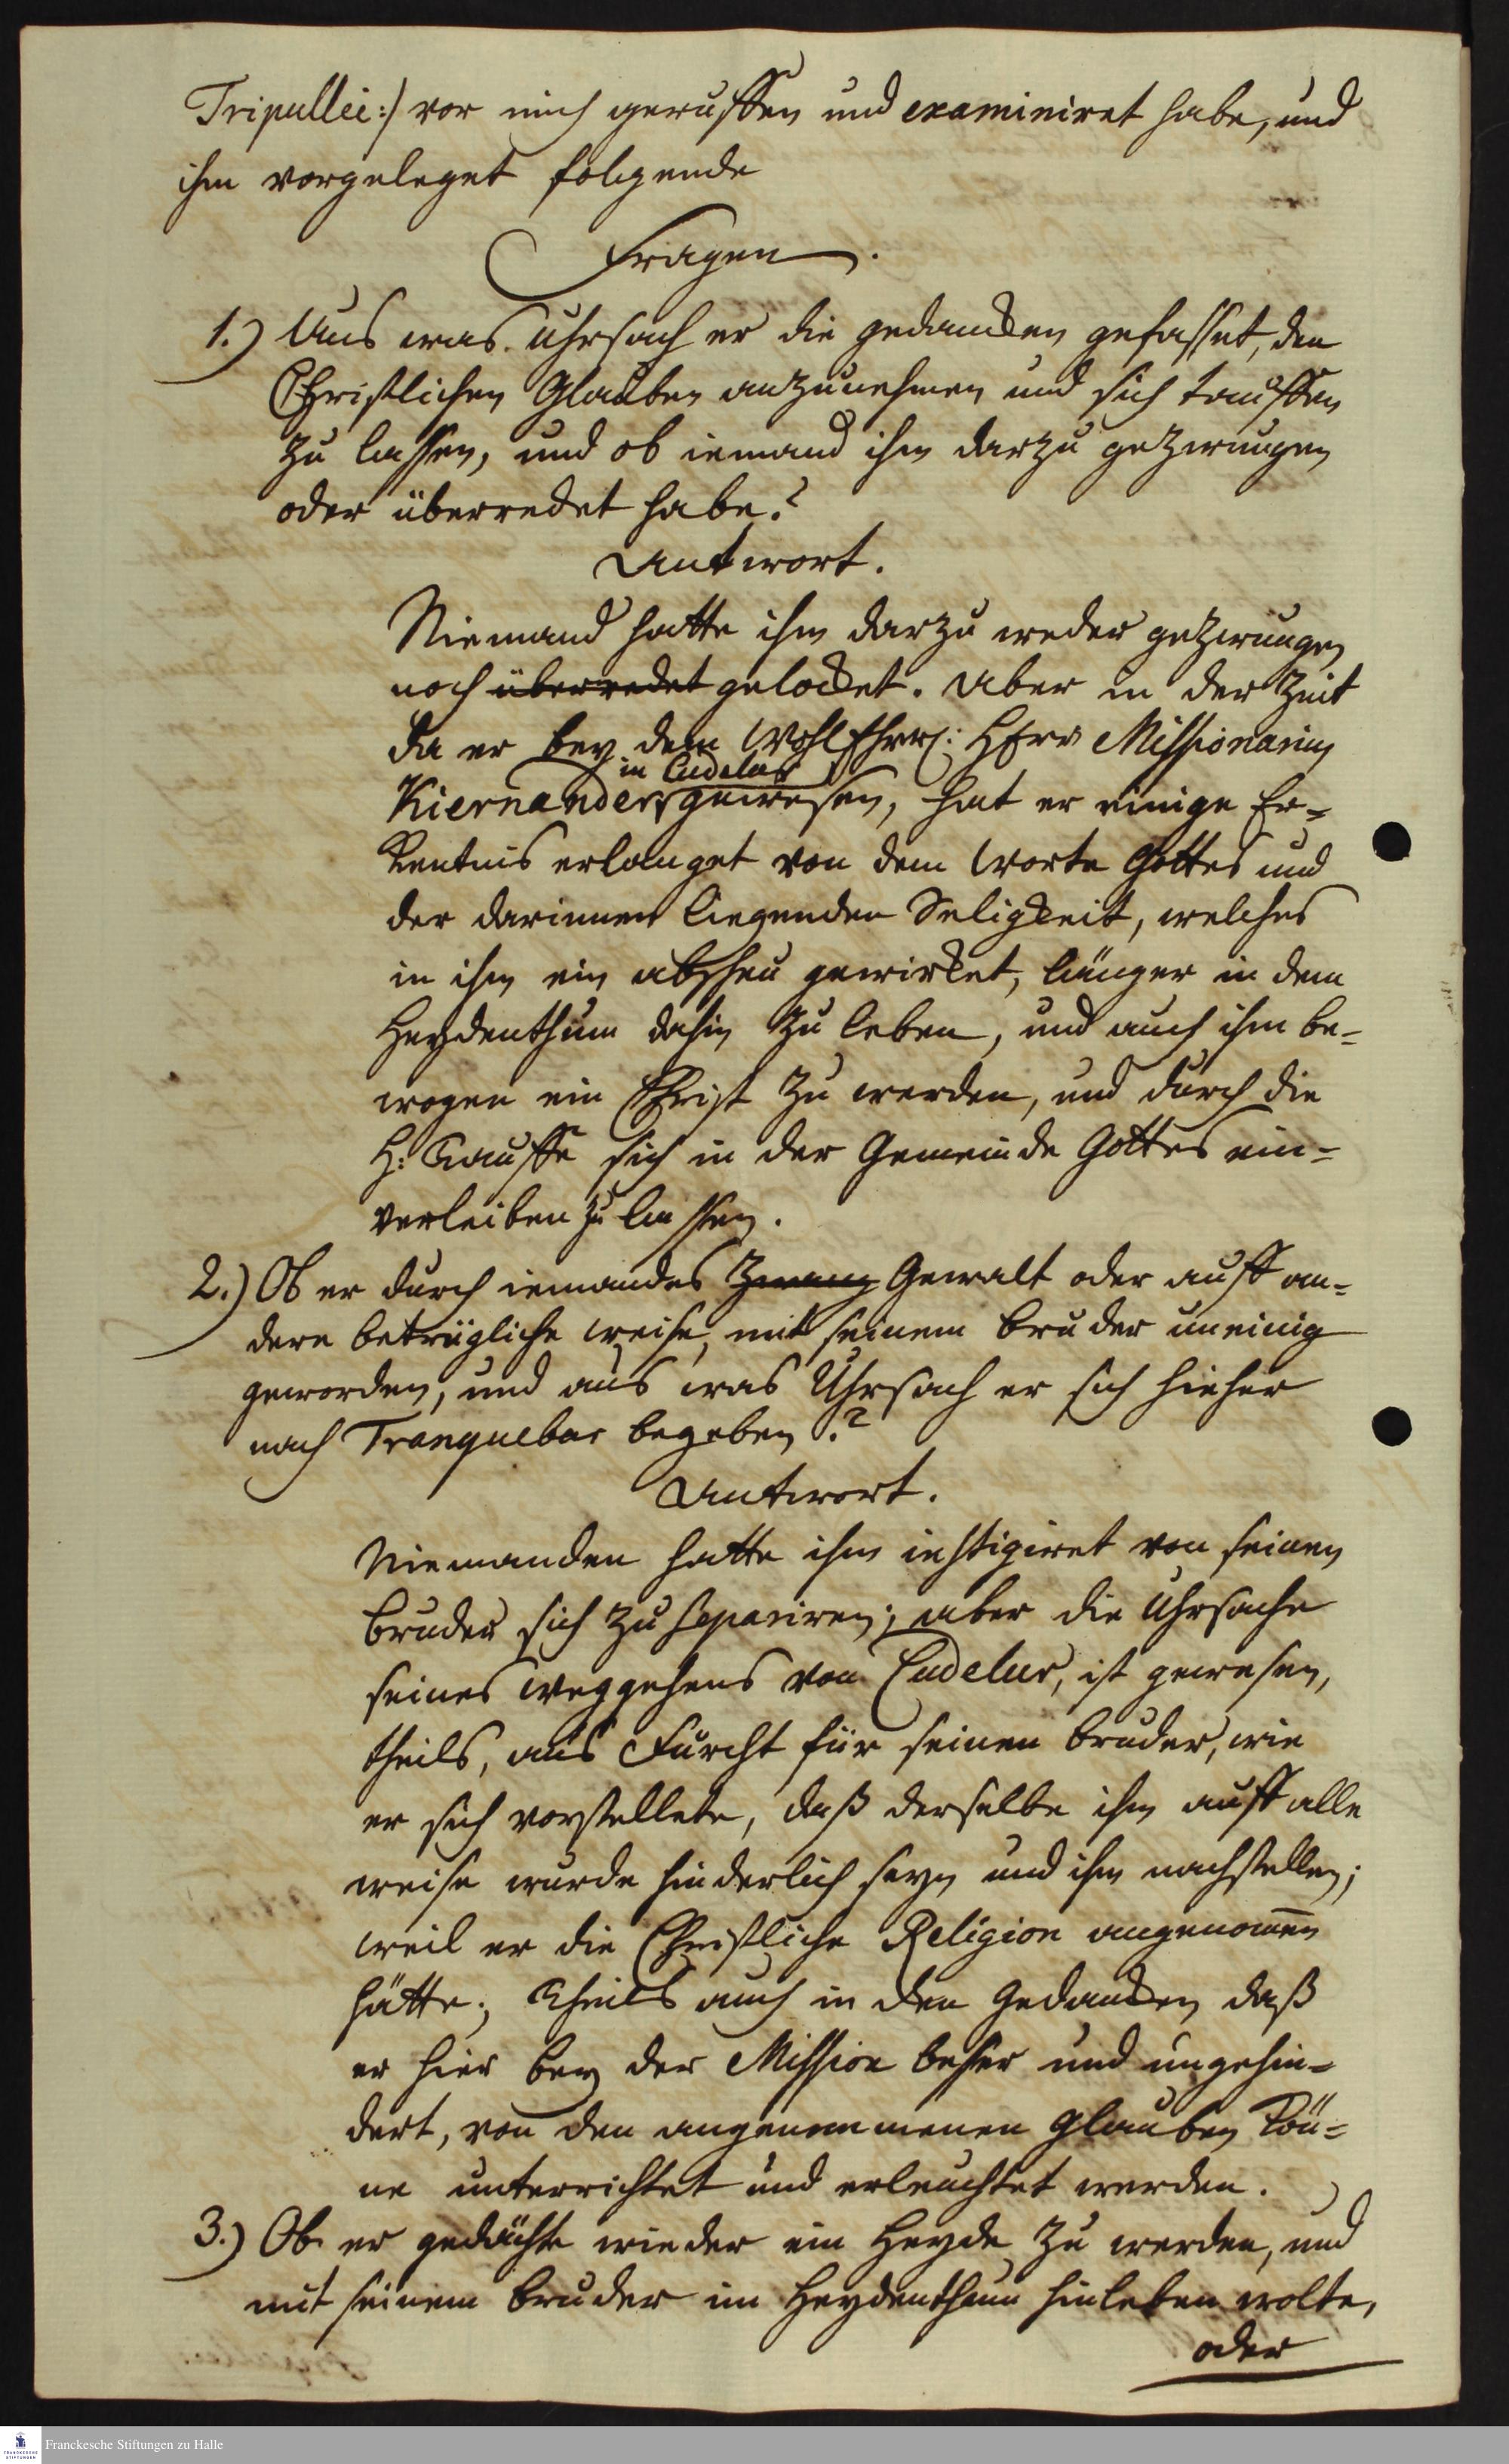 Tripullei:/ vor mich geruffen und examiniret habe, und
ihm vorgeleget folgende
Fragen.
1.) Aus was Uhrsach er die gedancken gefasset, den
Christlichen Glauben anzunehmen und sich tauffen
zu lassen, und ob iemand ihm darzu gezwungen
oder überredet habe?
Antwort.
Niemand hatte ihm darzu weder gezwungen
noch überredet gelocket. Aber in der Zeit
da er bey dem WohlEhrw: HErr Missionarius
in Cudelur
Kiernander gewesen, hat er einige Er-
kentnis erlanget von dem Worte Gottes und
der darinnen liegenden Seligkeit, welches
in ihm ein abscheu gewircket, länger in dem
Heydenthum dahin zu leben, und auch ihm be-
wogen ein Christ zu werden, und durch die
H: Tauffe sich in der Gemeinde Gottes ein-
verleiben zu lassen.
2.) Ob er durch iemandes Zwang Gewalt oder auff an-
dere betrügliche weise, mit seinem bruder uneinig
geworden, und aus was Uhrsach er sich hieher
nach Tranquebar begeben.?
Antwort.
Niemanden hatte ihm instigiret von seinen
bruder sich zu separiren; aber die Uhrsache
seines weggehens von Cudelur, ist gewesen,
theils, aus Furcht für seinen bruder, wie
er sich vorstellete, daß derselbe ihm auff alle
weise wurde hinderlich seyn und ihm nachstellen;
weil er die Christliche Religion angenomen
hätte; theils auch in den Gedancken daß
er hier bey der Mission besser und ungehin-
dert, von den angenommenen Glauben kön-
ne unterrichtet und erleuchtet werden.
3.) Ob er gedächte wieder ein Heyde zu werden, und
mit seinem bruder im Heydenthum hinleben wolte,
oder
Franckesche Stiftungen zu Halle